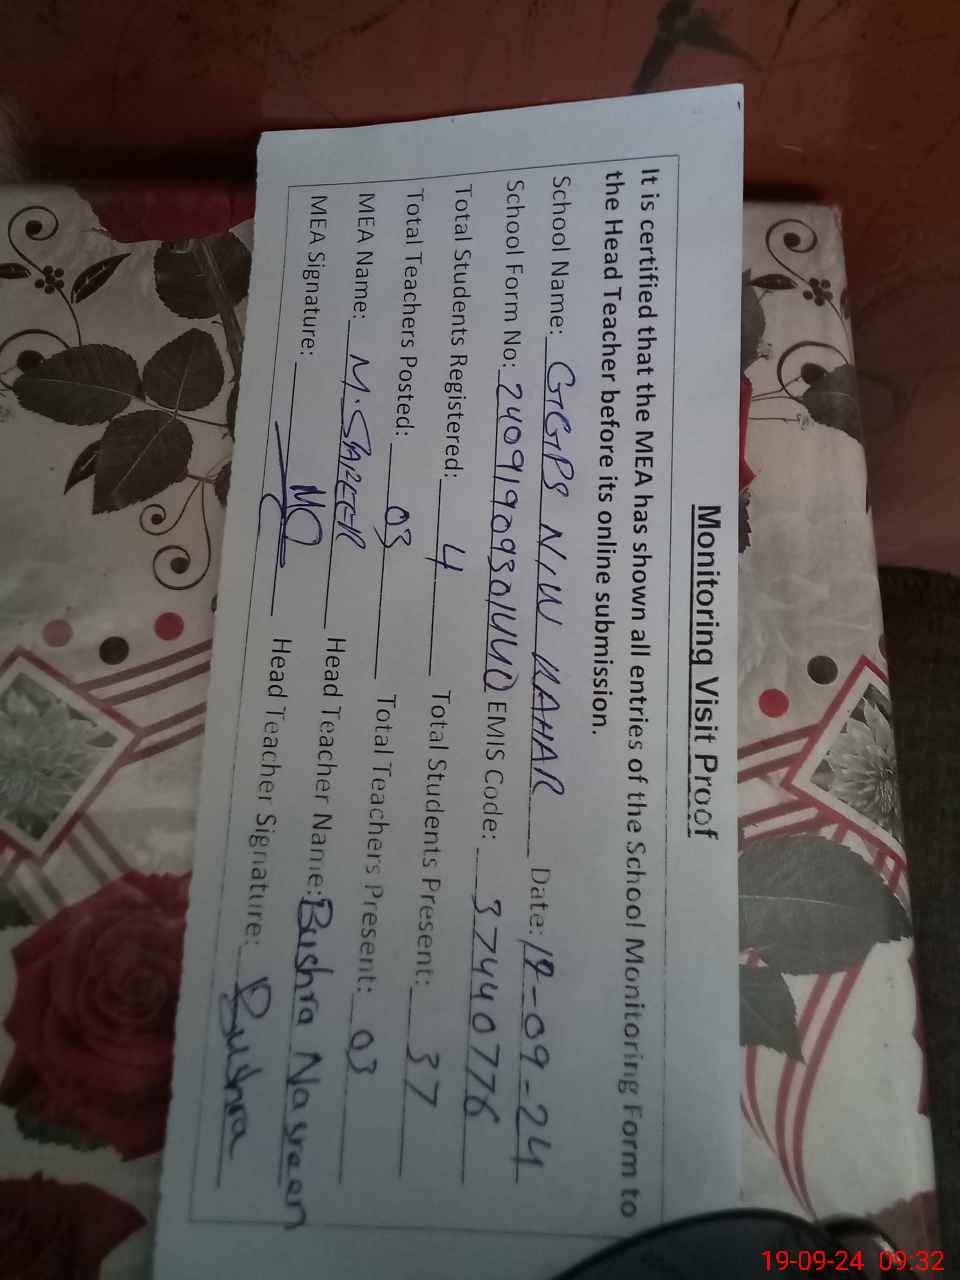 Monitoring Visit Proof
It is certified that the MEA has shown all entries of the School Monitoring Form to
the Head Teacher before its online submission.
School Name: GGPS NAHAR Date: 19-09-24
School Form No: EMIS Code: 37440776
Total Students Registered: 4 Total Students Present: 37
Total Teachers Posted: 03 Total Teachers Present: 03
MEA Name: M. Head Teacher Name: Bushra Nasreen
MEA Signature: Head Teacher Signature: Bushra
19-09-24 09:32